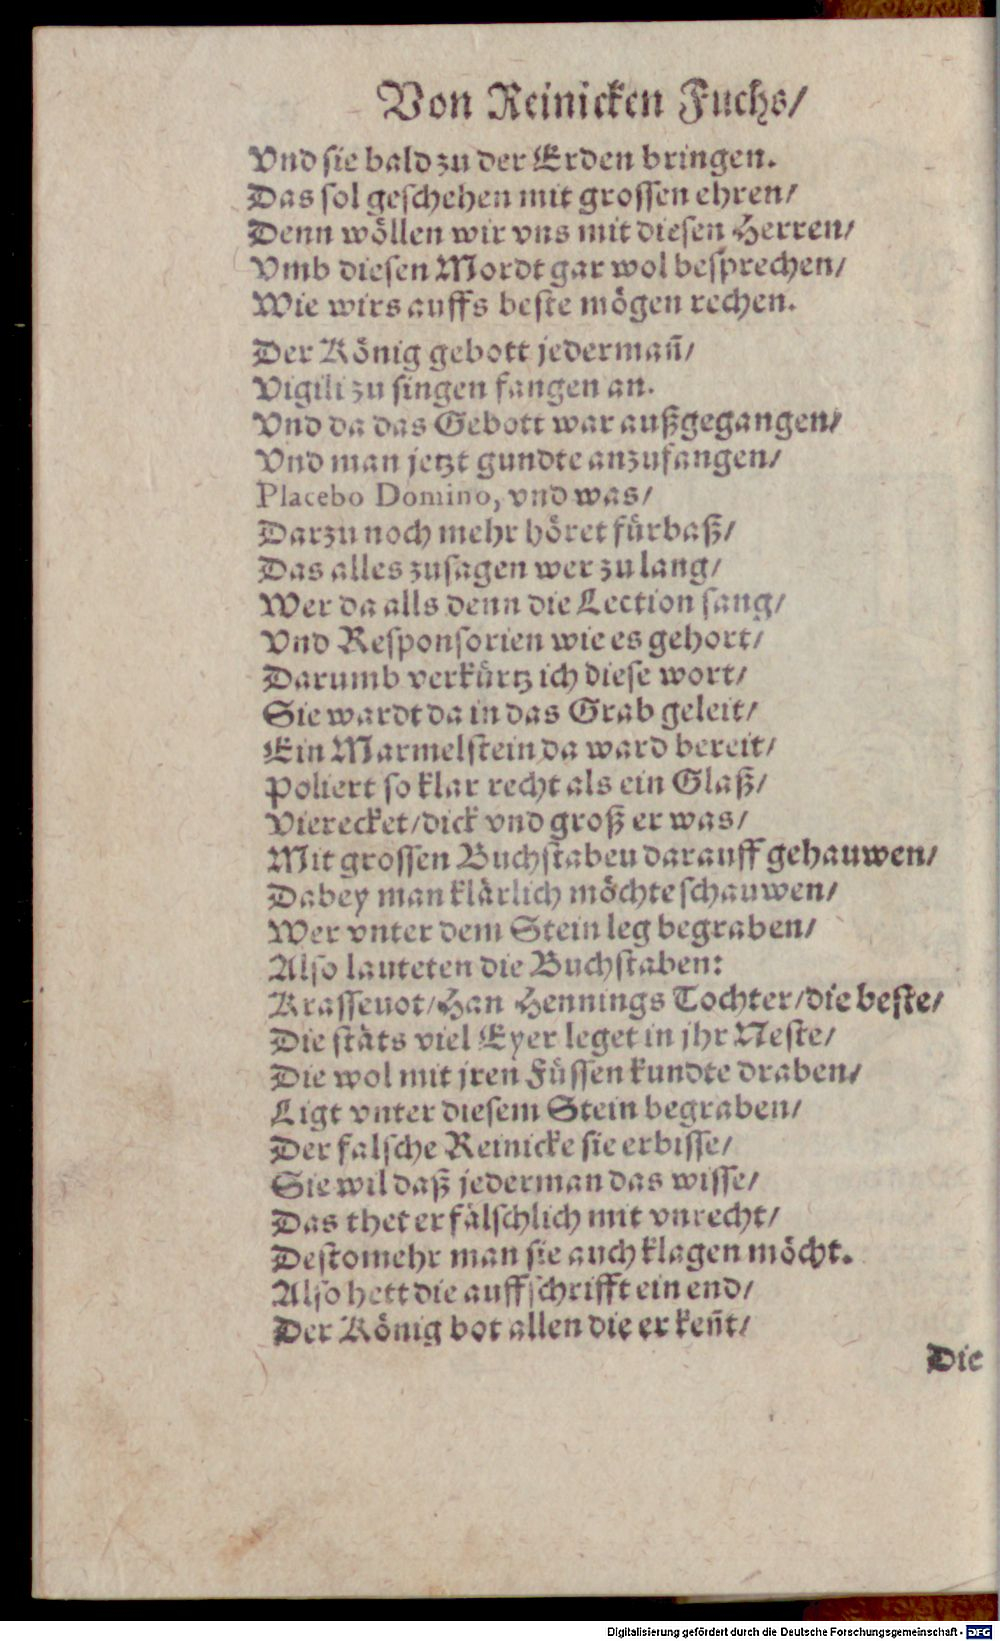 Von Reinicken Fuchs/
Vnd sie bald zu der Erden bringen.
Das sol geschehen mit grossen ehren/
Denn wöllen wir vns mit diesen Herren/
Vmb diesen Mordt gar wol besprechen/
Wie wirs auffs beste mögen rechen.
Der König gebott jederman̄/
Vigili zu singen fangen an.
Vnd da das Gebott war außgegangen/
Vnd man jetzt gundte anzufangen/
Placebo Domino, vnd was/
Darzu noch mehr höret fürbaß/
Das alles zusagen wer zu lang/
Wer da alls denn die Lection sang/
Vnd Responsorien wie es gehort/
Darumb verkürtz ich diese wort/
Sie wardt da in das Grab geleit/
Ein Marmelstein da ward bereit/
Poliert so klar recht als ein Glaß/
Vierecket/dick vnd groß er was/
Mit grossen Buchstaben darauff gehauwen/
Dabey man klärlich möchte schauwen/
Wer vnter dem Stein leg begraben/
Also lauteten die Buchstaben:
Krasseuot/Han Hennings Tochter/die beste/
Die stäts viel Eyer leget in jhr Neste/
Die wol mit jren Füssen kundte draben/
Ligt vnter diesem Stein begraben/
Der falsche Reinicke sie erbisse/
Sie wil daß jederman das wisse/
Das thet er fälschlich mit vnrecht/
Destomehr man sie auch klagen möcht.
Also hett die auffschrifft ein end/
Der König bot allen die er ken̄t/
Die
Digitalisierung gefördert durch die Deutsche Forschungsgemeinschaft - DFG